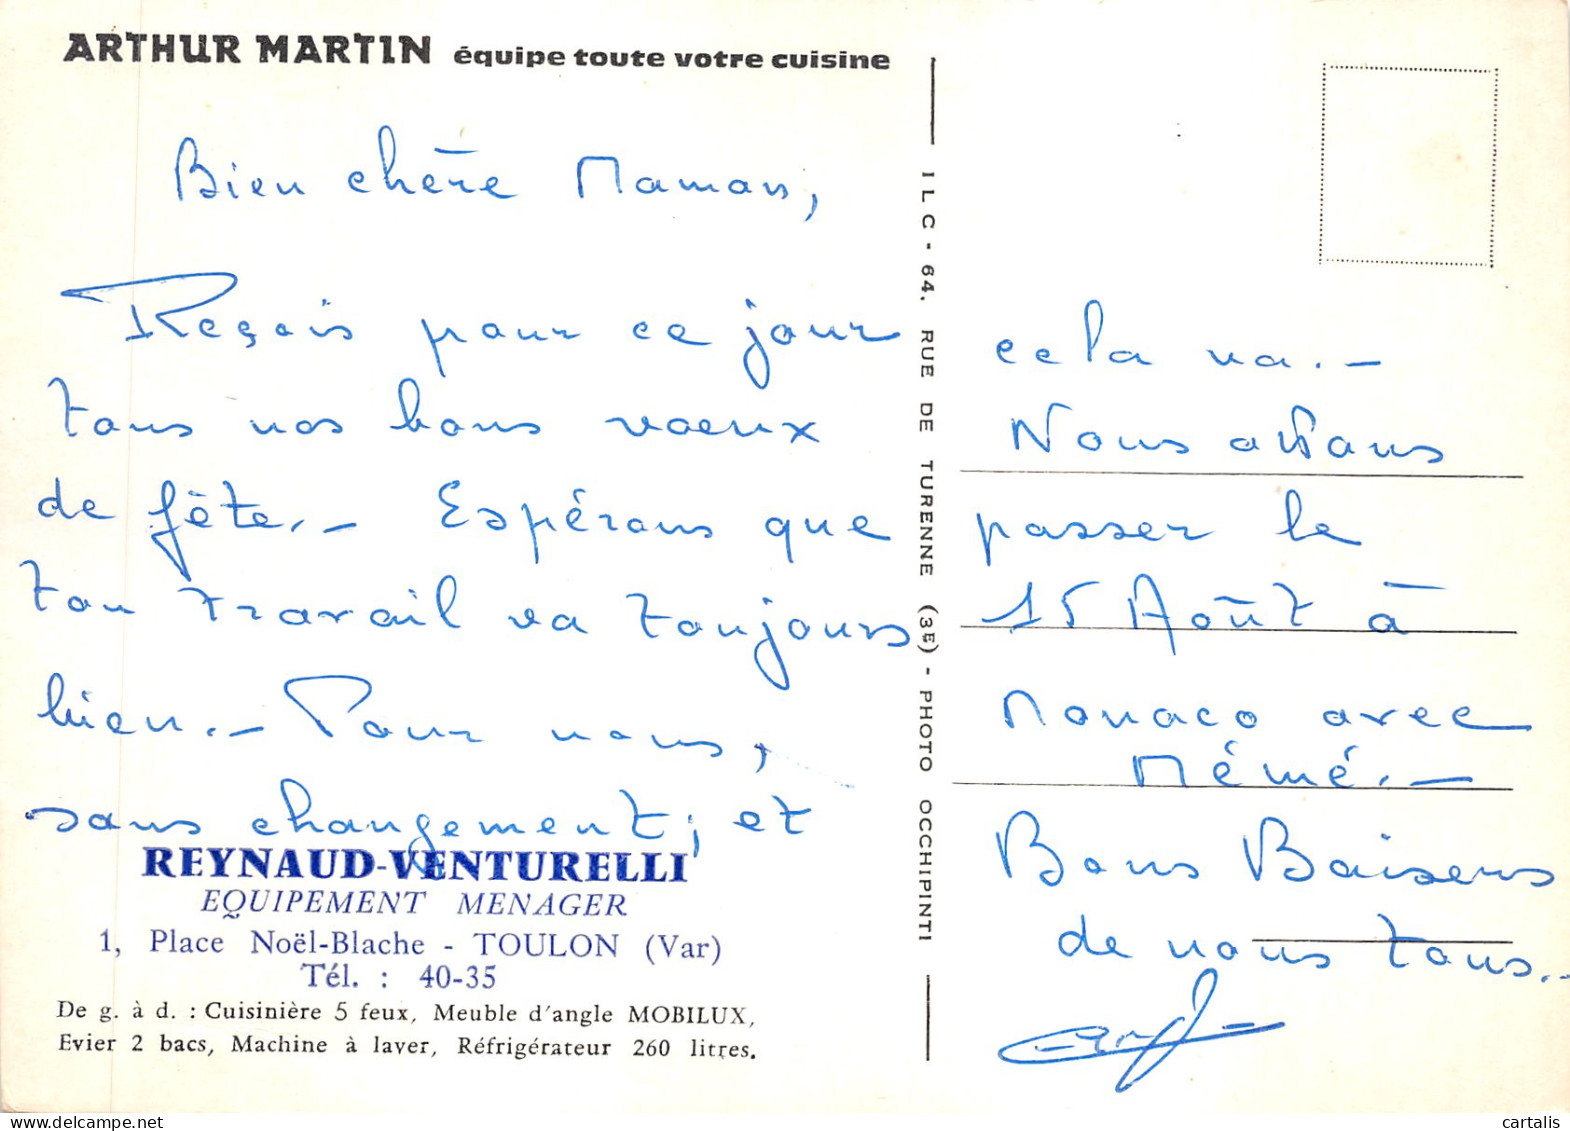 ARTHUR MARTIN équipe toute votre cuisine
Bien chère Maman,
Reçois pour ce jour
tous nos bons voeux
de fête. - Espérons que
ton travail va toujours
bien. - Pour nous,
sans changement, et
REYNAUD-VENTURELLI
EQUIPEMENT MENAGER
1, Place Noël-Blache - TOULON (Var)
Tél. : 40-35
De g. à d. : Cuisinière 5 feux, Meuble d'angle MOBILUX,
Evier 2 bacs, Machine à laver, Réfrigérateur 260 litres.
I L C - 64, RUE DE TURENNE (3E) - PHOTO OCCHIPINTI
cela va. -
Nous allons
passer le
15 Août à
Monaco avec
Mémé. -
Bons Baisers
de nous tous. -
cartalis